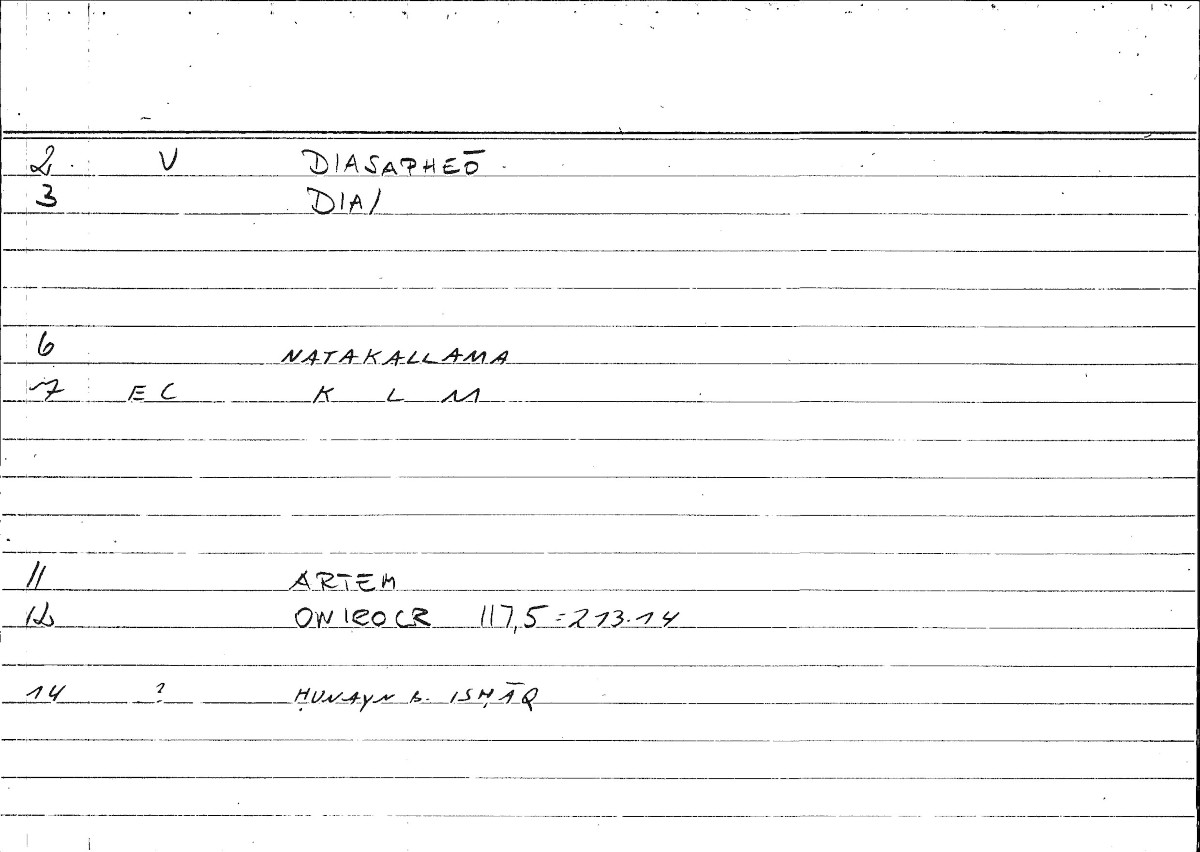 2. V DIASAPHEŌ
3 DIA/
6 NATAKALLAMA
7 EC K L M
11 ARTEM
12 ONIROCR 117,5 = 213.14
14 ? ḤUNAYN B. ISḤĀQ